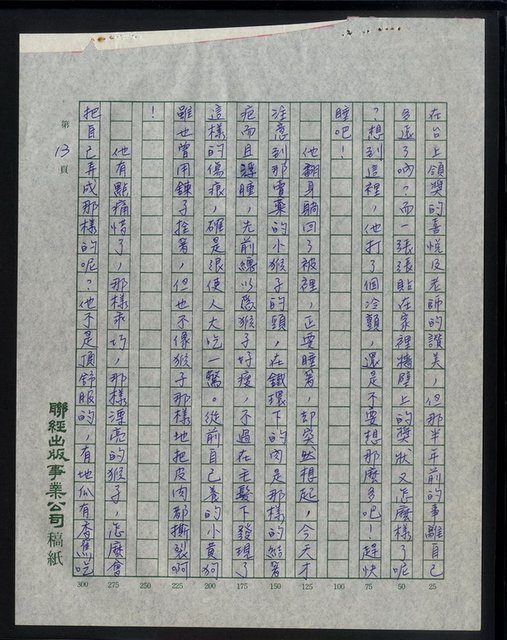 在台上領獎的喜悅及老師的讚美，但那半年前的事離自己
多遠了啊？而一張張貼在家裡牆壁上的獎狀又怎麼樣了呢
？想到這裡，他打了個冷顫，還是不要想那麼多吧！趕快
睡吧！
他翻身躺回了被裡，正要睡著，却突然想起，今天才
注意到那賣藥的小猴子的頭，在鐵環下的肉是那樣的結著
疤而且踝腫，先前總以為猴子好瘦，不過在毛髮下發現了
這樣的傷痕，確是很使人大吃一驚。從前自己養的小黃狗
雖也曾用鍊子拴著，但也不像猴子那樣地把皮肉都撕裂啊
！
他有點痛惜了，那樣乖巧，那樣漂亮的猴子，怎麼會
把自己弄成那樣的呢？他不是頂舒服的，有地瓜有香蕉吃
第 13 頁
聯經出版事業公司 稿紙
25
50
75
100
125
150
175
200
225
250
275
300